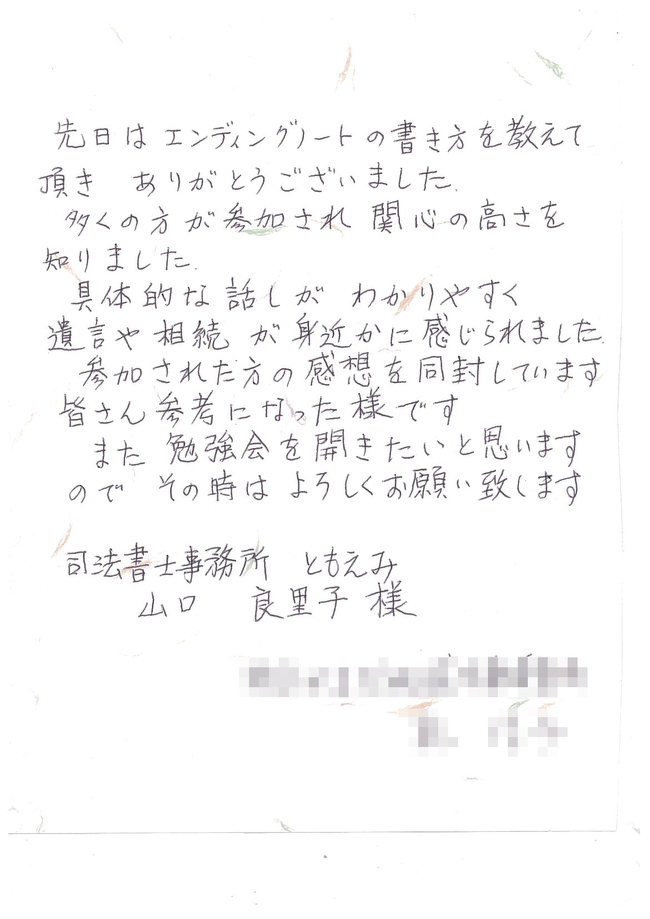 先日は エンディングノートの書き方を教えて
頂き ありがとうございました.
多くの方が参加され 関心の高さを
知りました.
具体的な話しが わかりやすく
遺言や相続 が身近かに感じられました.
参加された方の感想を同封しています
皆さん参考になった様です
また 勉強会を開きたいと思います
ので その時は よろしくお願い致します
司法書士事務所 ともえみ
山口 良里子 様